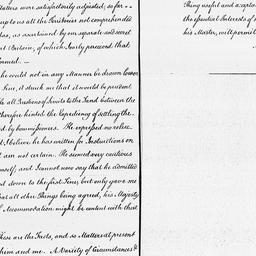 Matters were satisfactorily adjusted; so far
up to us all the Territories not comprehended
as, as ascertained by our separate and secret
Great Britain, of which surely percend that
ormed. —
he could not in any Manner be drawn
him, it struck me that it would be prudent
le all Questions of Limits to the Land between the
therefore hinted the Expediency of settling the
ed by
He expressed no
I believe he has written for Instructions on
am not certain. He seemed very cautious
himself; and I cannot now say that he admitted
ed down to the first Line; but only gave me
that all other Things being agreed, his Majesty
of Accommodation might be content with that
These are the Facts, and so Matters at present
them and me. A Variety of Circumstances
thing useful and
the essential Interests of
his Master, will permit